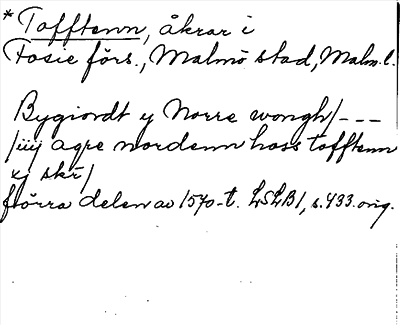 * Tofftenn, åkrar i
Fosie förs., Malmö stad, Malm. l.
Bygiordt y Norre wongh/---
/iiij agre nordenn hoss tofftenn
xj skr/
förra delen av 1570-t. LSLB1, s. 433. orig.